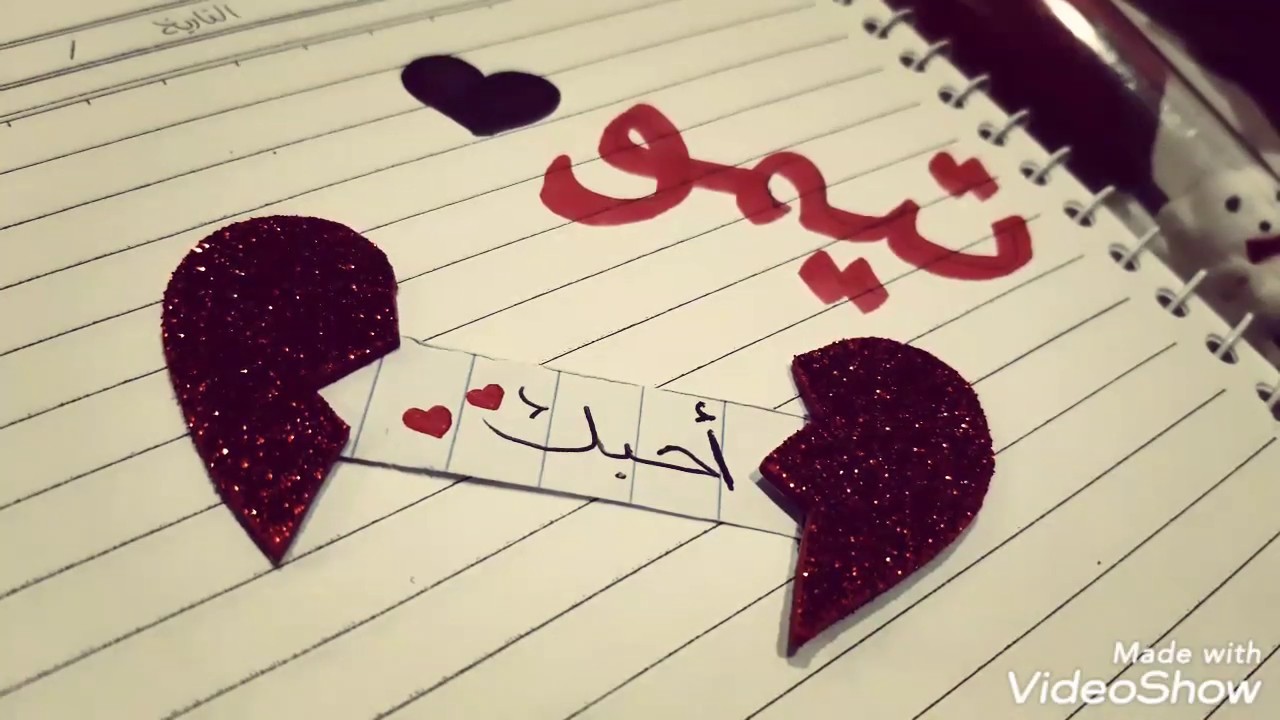 التاريخ /
تيمو
أحبك
Made with
VideoShow